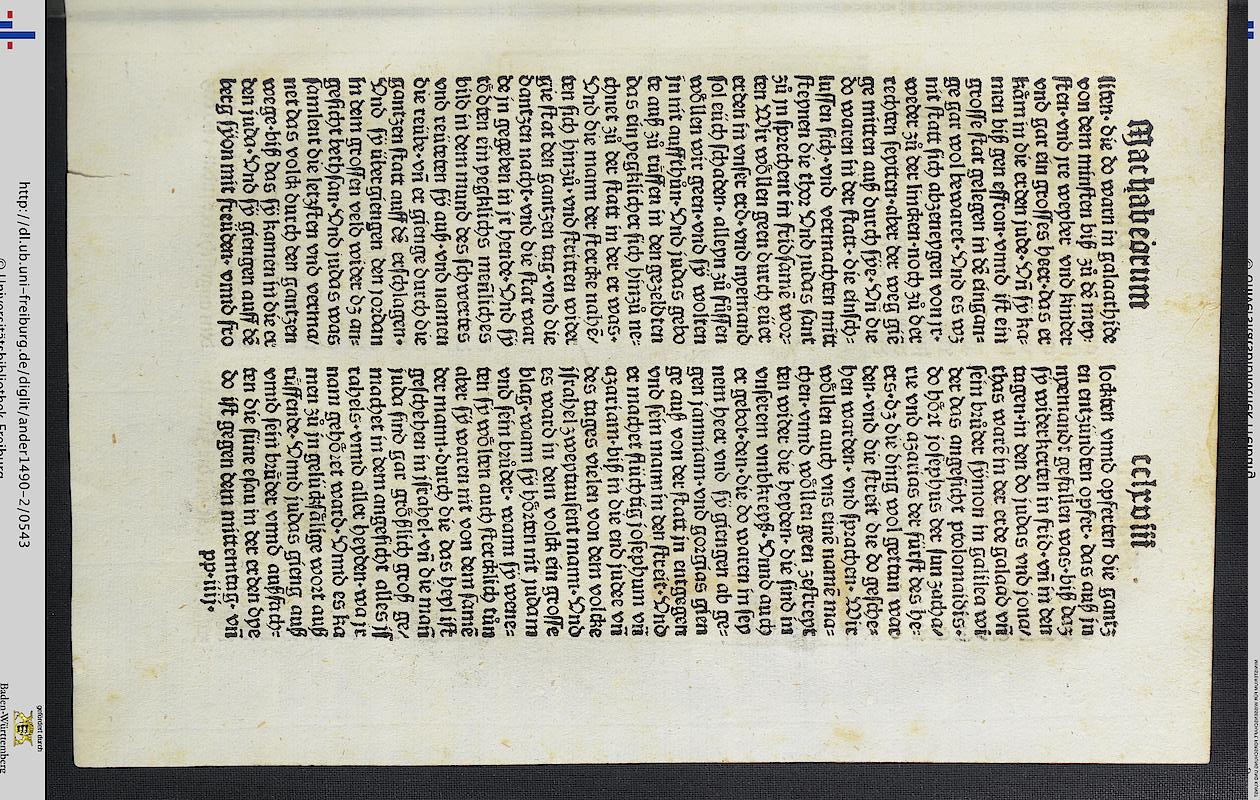 Machabeorum
liten· die do warn in galaathide
von dem minsten biß zů dē mey-
sten· vnd jre weyber vnd kinder
vnd gar ein grosses heer· das er
kām in die erden jude· Vñ sy ka-
men biß gen effron· vnnd ist ein
grosse stat gelegen in dē eingan-
ge gar wol bewaret· Vnd es wz
nit statt sich abzeneygen von jr·
weder zů der lincken· noch zů der
rechten seytten· aber der weg giē
ge mitten auß durch sye· Vñ die
do waren in der statt· die einsch-
lussen sich· vnd vermachten mitt
steynen die thor Vnd judas sant
zů jn sprechent in fridsamē wor-
ten Wir wöllen geen durch euer
erden in vnser erd· vnd nyemand
sol euch schaden· alleyn zů füssen
wöllen wir geen· vnd sy wolten
jn nit auffthůn· Vnd judas gebo
te auß zů rüffen in den gezeldten
das ein yegklicher sich hinzů ne-
chnet zů der statt in der er wass·
Vnd die mann der stercke nahē/
ten sich hinzů vnd stritten wider
die stat den gantzen tag· vnd die
gantzen nacht· vnd die stat war
de jn gegeben in jr hende· Vnd sy
tödten ein yegklichs menliches
bild in dem mund des schwertes
vnd reuteten sy auß· vnd namen
die reübe· vñ er gienge durch die
gantzen statt auff dē erschlagen·
Vnd sy übergiengen den jordan
in dem grossen veld wider dz an-
gesicht bethsan· Vnd judas was
samlent die letzsten vnd verma/
net das volck durch den gantzen
wege· biß das sy kamen in die er
den juda· Vnd sy giengen auff dē
berg syon mit freüden· vnnd fro
cclxviii
lockten vnnd opferten die gantz
en entzündten opfer· das auß jn
nyemandt gefallen was· biß daz
sy widerkerten in frid· vñ in den
tagen· in den do judas vnd jona/
thas warē in der erde galaad vñ
sein brůder symon in galilea wi/
der das angesicht ptolomaidis·
do hört josephus der sun zacha/
rie vnd azarias der fürst des he-
ers· dz die ding wol getann war
den· vnd die streit die do gesche-
hen warden· vnd sprachen· Wir
wöllen auch vns einē namē ma-
chen· vnnd wöllen geen zestreyt
ten wider die heyden· die sind in
vnserem vmbkreyß· Vnnd auch
er gebot· den· die do waren in sey
nem heer vnd sy giengen ab ge-
gen jamniam· vnd gorgias gien
ge auß von der statt jn entgegen
vnd sein mann in den streit· Vnd
er machet flüchtig josephum vñ
azariam· biß in die end judee vñ
des tages vielen von dem volcke
jsrahel zweytausent mann· Vnd
es ward in dem volck ein grosse
plag· wann sy hörten nit judam
vnd sein brůder· wann sy wene-
ten sy wölten auch stercklich tůn
aber sy waren nit von dem sam
der mann· durch die das heyl ist
geschehen in jsrahel· vñ die man
juda sind gar größlich groß ge/
machet in dem angesicht alles js
rahels· vnnd aller heyden· wa jr
nam gehöret ward· Vnnd es ka
men zů jn gelücksälige wort auß
rüffende· Vnnd judas gieng auß
vnnd sein brůder vnnd außfäch-
ten die süne esau in der erden dye
do ist gegen dem mittemtag· vñ
pp iij·
http://dl.ub.uni-freiburg.de/diglit/ander1490-2/0543
© Universitätsbibliothek Freiburg
gefördert durch
Baden-Württemberg